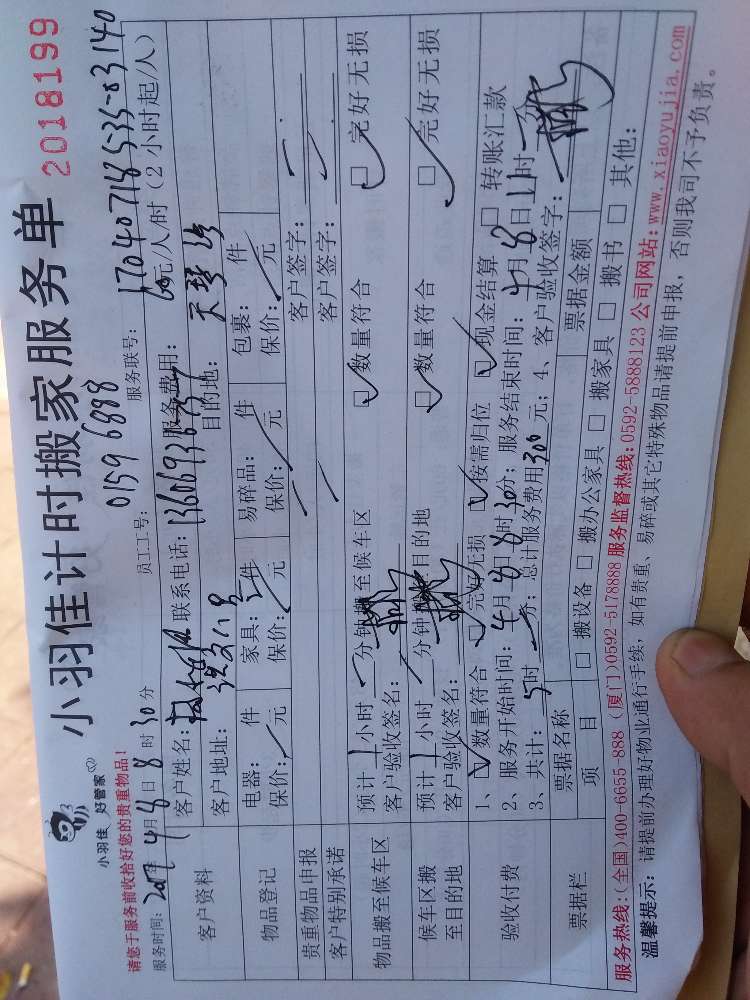 小羽佳 好管家
小羽佳计时搬家服务单
2018199
请您于服务前收拾好您的贵重物品！
服务时间：2017年4月8日8时30分 员工工号：01596888 服务联号：
客户资料
客户姓名： 联系电话： 服务费用：60元/人/时（2小时起/人）
客户地址： 目的地：
物品登记
电器： 件 家具： 件 易碎品： 件 包裹： 件
保价： 元 保价： 元 保价： 元 保价： 元
贵重物品申报 客户签字：
客户特别承诺 客户签字：
物品搬至候车区
预计1小时 分钟搬至候车区 数量符合 完好无损
客户验收签名：
候车区搬至目的地
预计1小时 分钟 目的地 数量符合 完好无损
客户验收签名：
验收付费
1、数量符合 完好无损 按需归位 现金结算 转账汇款
2、服务开始时间：4月8日8时30分；服务结束时间：4月8日11时 分
3、共计：5时 分；总计服务费用300元；4、客户验收签字：
票据栏
票据名称 票据金额
项目 搬设备 搬办公家具 搬家具 搬书 其他：
服务热线：(全国)400-6655-888 (厦门)0592-5178888 服务监督热线：0592-5888123 公司网站：www.xiaoyujia.com
温馨提示：请提前办理好物业通行手续，如有贵重、易碎或其它特殊物品请提前申报，否则我司不予负责。